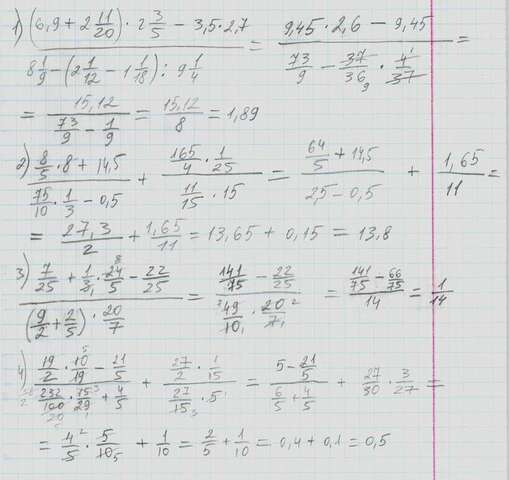 1) ((6,9 + 2 11/20) · 2 3/5 − 3,5 · 2,7) / (8 1/9 − (2 1/12 − 1 1/18) : 9 1/4) = (9,45 · 2,6 − 9,45) / (73/9 − 37/36 · 4/37) =
= 15,12 / (73/9 − 1/9) = 15,12/8 = 1,89
2) (8/5 · 8 + 14,5) / (75/10 · 1/3 − 0,5) + (165/4 · 1/25) / (11/15 · 15) = (64/5 + 14,5) / (2,5 − 0,5) + 1,65/11 =
= 27,3/2 + 1,65/11 = 13,65 + 0,15 = 13,8
3) (7/25 + 1/3 · 24/5 − 22/25) / ((9/2 + 2/5) · 20/7) = (141/75 − 22/25) / (49/10 · 20/7) = (141/75 − 66/75) / 14 = 1/14
4) (19/2 · 10/19 − 21/5) / (232/100 · 15/29 + 4/5) + (27/2 · 1/15) / (27/15 · 5) = (5 − 21/5) / (6/5 + 4/5) + 27/30 · 3/27 =
= 4/5 · 5/10 + 1/10 = 2/5 + 1/10 = 0,4 + 0,1 = 0,5